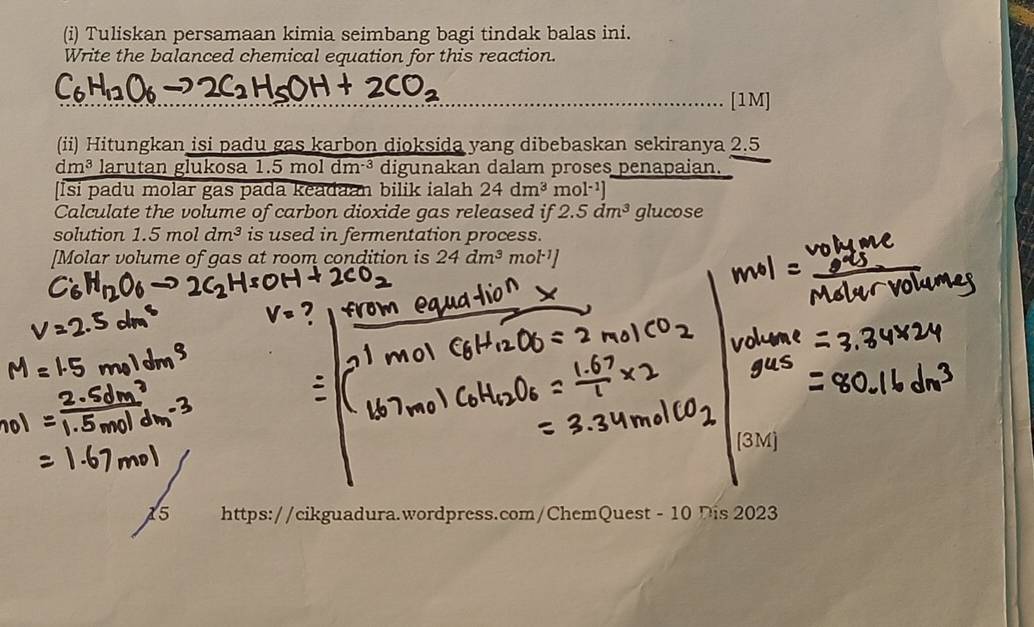 (i) Tuliskan persamaan kimia seimbang bagi tindak balas ini.
Write the balanced chemical equation for this reaction.
C₆H₁₂O₆ → 2C₂H₅OH + 2CO₂ [1M]
(ii) Hitungkan isi padu gas karbon dioksida yang dibebaskan sekiranya 2.5
dm³ larutan glukosa 1.5 mol dm⁻³ digunakan dalam proses penapaian.
[Isi padu molar gas pada keadaan bilik ialah 24 dm³ mol⁻¹]
Calculate the volume of carbon dioxide gas released if 2.5 dm³ glucose
solution 1.5 mol dm³ is used in fermentation process.
[Molar volume of gas at room condition is 24 dm³ mol⁻¹]
C₆H₁₂O₆ → 2C₂H₅OH + 2CO₂
V = 2.5 dm³
V = ?
M = 1.5 mol dm³
mol = 2.5dm³ / 1.5 mol dm⁻³
= 1.67 mol
from equation
x
= 1 mol C₆H₁₂O₆ = 2 mol CO₂
1.67 mol C₆H₁₂O₆ = 1.67/1 × 2
= 3.34 mol CO₂
mol = volume gas / Molar volumes
volume gas = 3.34 × 24
= 80.16 dm³
[3M]
15 https://cikguadura.wordpress.com/ChemQuest - 10 Dis 2023